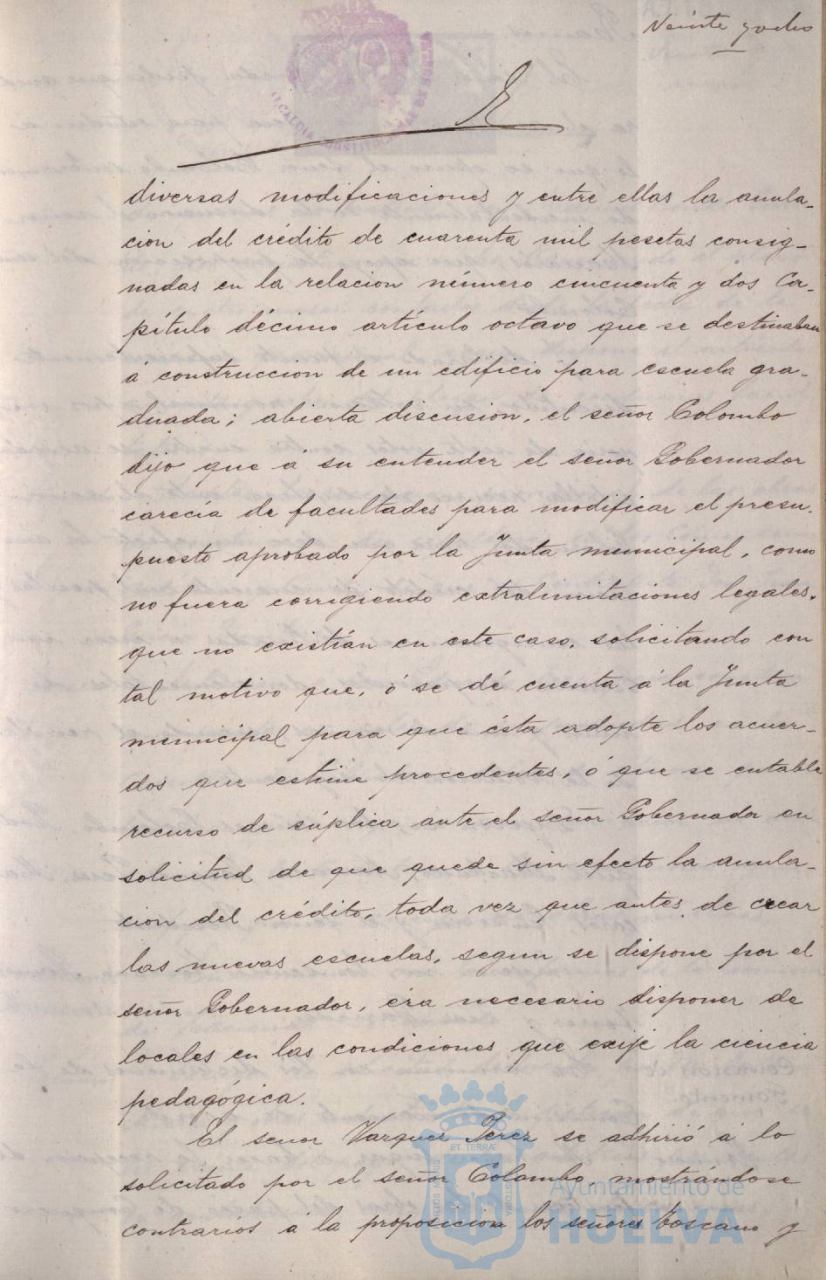 Veinte y ocho
diversas modificaciones y entre ellas la anula-
cion del crédito de cuarenta mil pesetas consig-
nadas en la relacion número cincuenta y dos Ca-
pítulo décimo artículo octavo que se destinaban
á construccion de un edificio para escuela gra-
duada; abierta discusion, el señor Colombo
dijo que á su entender el señor Gobernador
carecía de facultades para modificar el presu-
puesto aprobado por la Junta municipal, como
no fuera corrigiendo extralimitaciones legales,
que no existían en este caso, solicitando con
tal motivo que, ó se dé cuenta á la Junta
municipal para que ésta adopte los acuer-
dos que estime procedentes, ó que se entable
recurso de súplica ante el señor Gobernador en
solicitud de que quede sin efecto la anula-
cion del crédito, toda vez que antes de crear
las nuevas escuelas, segun se dispone por el
señor Gobernador, éra necesario disponer de
locales en las condiciones que exije la ciencia
pedagógica.
El señor Vazquez Perez se adhirió á lo
solicitado por el señor Colombo, mostrándose
contrarios á la proposicion los señores Toscano y
Ayuntamiento de
HUELVA